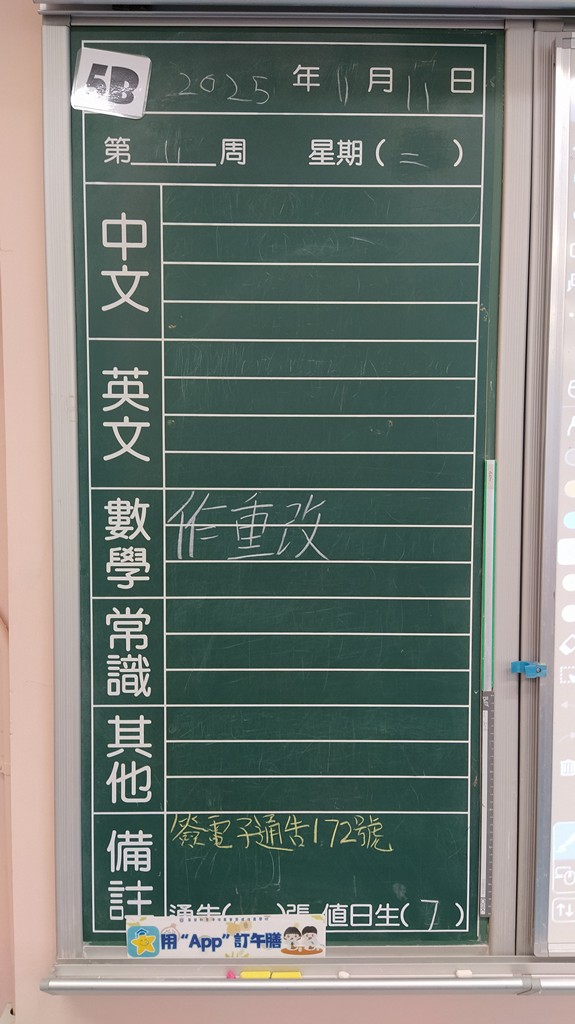 5B
2025 年 11 月 11 日
第 11 周 星期 ( 二 )
中文
英文
數學 作重改
常識
其他
備註 簽電子通告172號
通告( )張 值日生( 7 )
用 “App” 訂午膳